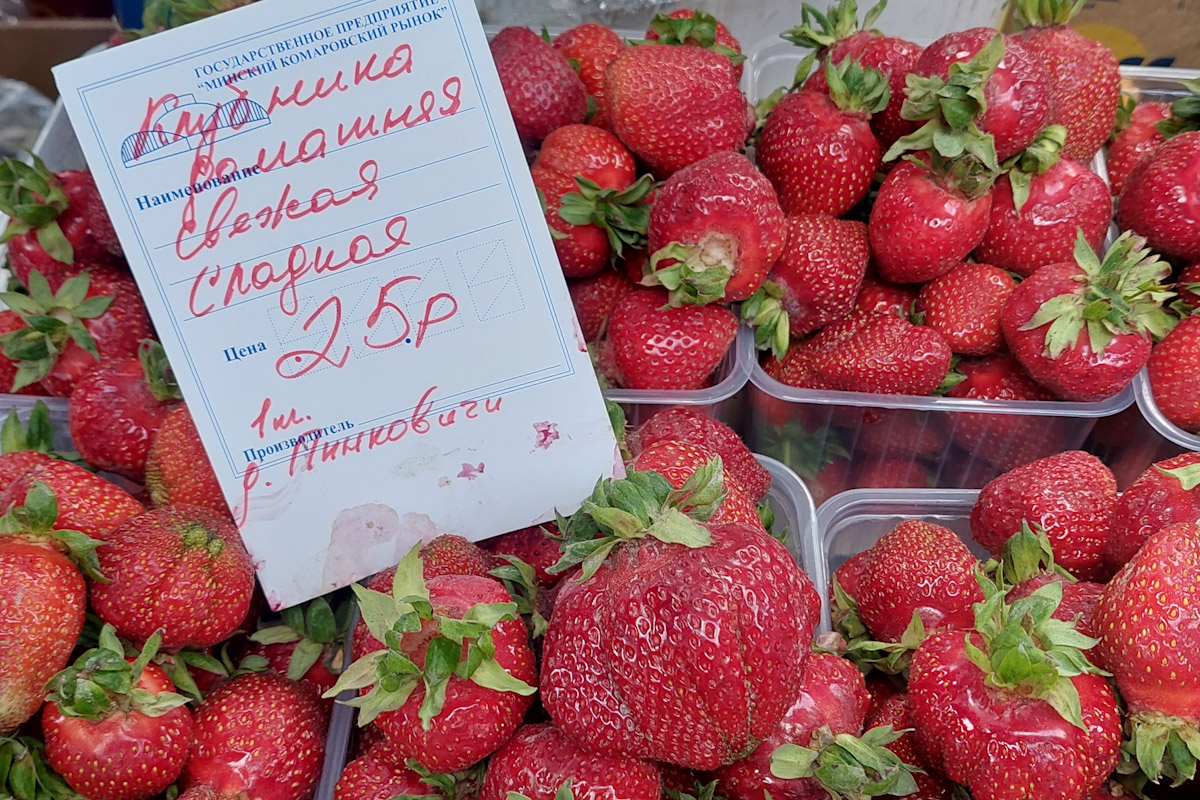 ГОСУДАРСТВЕННОЕ ПРЕДПРИЯТИЕ
"МИНСКИЙ КОМАРОВСКИЙ РЫНОК"
Клубника
домашняя
Наименование
свежая
сладкая
Цена 25р
1кг.
Производитель
д. Пинковичи